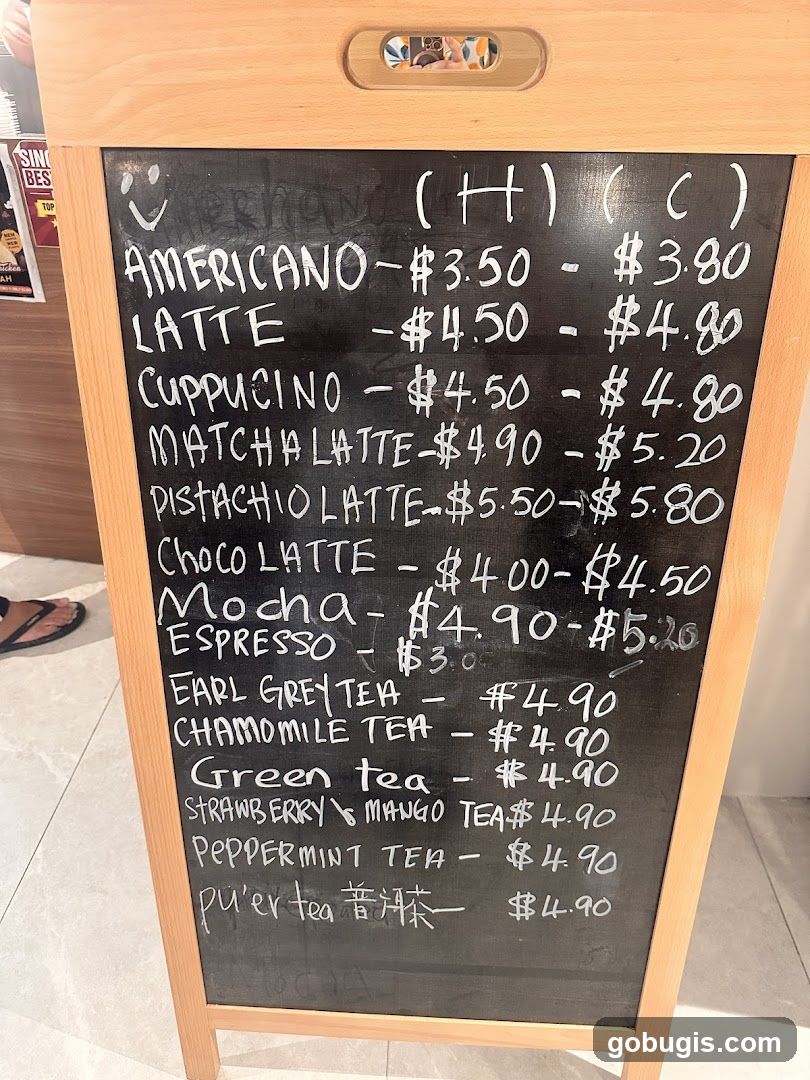 SING
BEST
TOP
(H) (C)
AMERICANO - $3.50 - $3.80
LATTE - $4.50 - $4.80
CUPPUCINO - $4.50 - $4.80
MATCHA LATTE - $4.90 - $5.20
PISTACHIO LATTE - $5.50 - $5.80
CHOCO LATTE - $4.00 - $4.50
Mocha - $4.90 - $5.20
ESPRESSO - $3.00
EARL GREY TEA - $4.90
CHAMOMILE TEA - $4.90
Green tea - $4.90
STRAWBERRY & MANGO TEA $4.90
PEPPERMINT TEA - $4.90
pu'er tea 普洱茶 - $4.90
gobugis.com